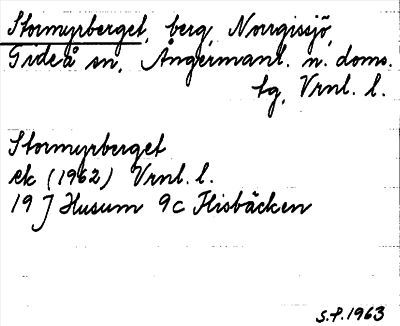 Stormyrberget, berg, Norrgissjö,
Gideå sn, Ångermanl. n. doms.
tg, Vrnl. l.
Stormyrberget
ek (1962) Vrnl. l.
19 J Husum 9c Flisbäcken
S.P. 1963